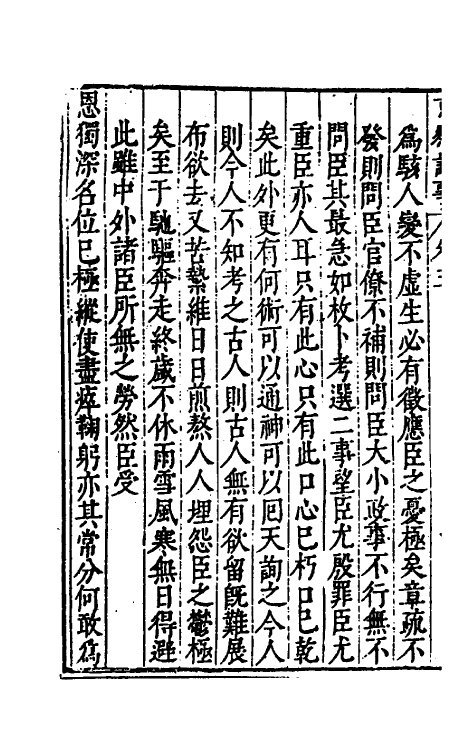 爲駭人變不虛生必有徵應臣之憂極矣章疏不
發則問臣官僚不補則問臣大小政事不行無不
問臣其最急如枚卜考選二事望臣尤殷罪臣尤
重臣亦人耳只有此心只有此口心已朽口已乾
矣此外更有何術可以通神可以囘天詢之今人
則今人不知考之古人則古人無有欲留旣難展
布欲去又苦縶維日日煎熬人人埋怨臣之鬱極
矣至于馳驅奔走終歲不休雨雪風寒無日得避
此雖中外諸臣所無之勞然臣受
恩獨深名位已極縱使盡瘁鞠躬亦其常分何敢爲